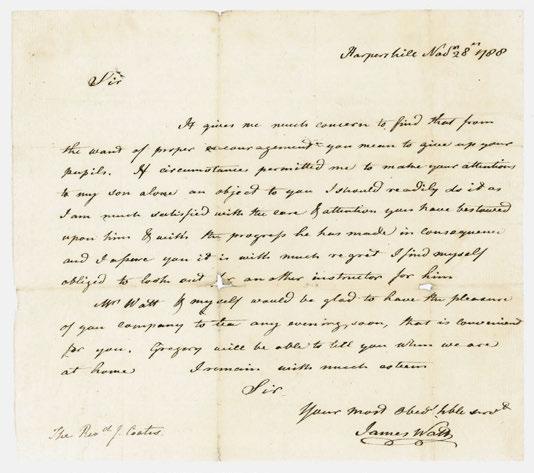 Harpershill Nov 28 1788
Sir
It gives me much concern to find that from
the want of proper encouragement you mean to give up your
pupils. If circumstances permitted me to make your attention
to my son alone an object to you I should readily do it as
I am much satisfied with the care & attention you have bestowed
upon him & with the progress he has made in consequence
and I assure you it is with much regret I find myself
obliged to look out for another instructor for him
Mrs Watt & myself would be glad to have the pleasure
of you company to tea any evening soon, that is convenient
for you. Gregory will be able to tell you when we are
at home I remain with much esteem
Sir
Your most Obedt hble servt
James Watt
The Revd J. Coates